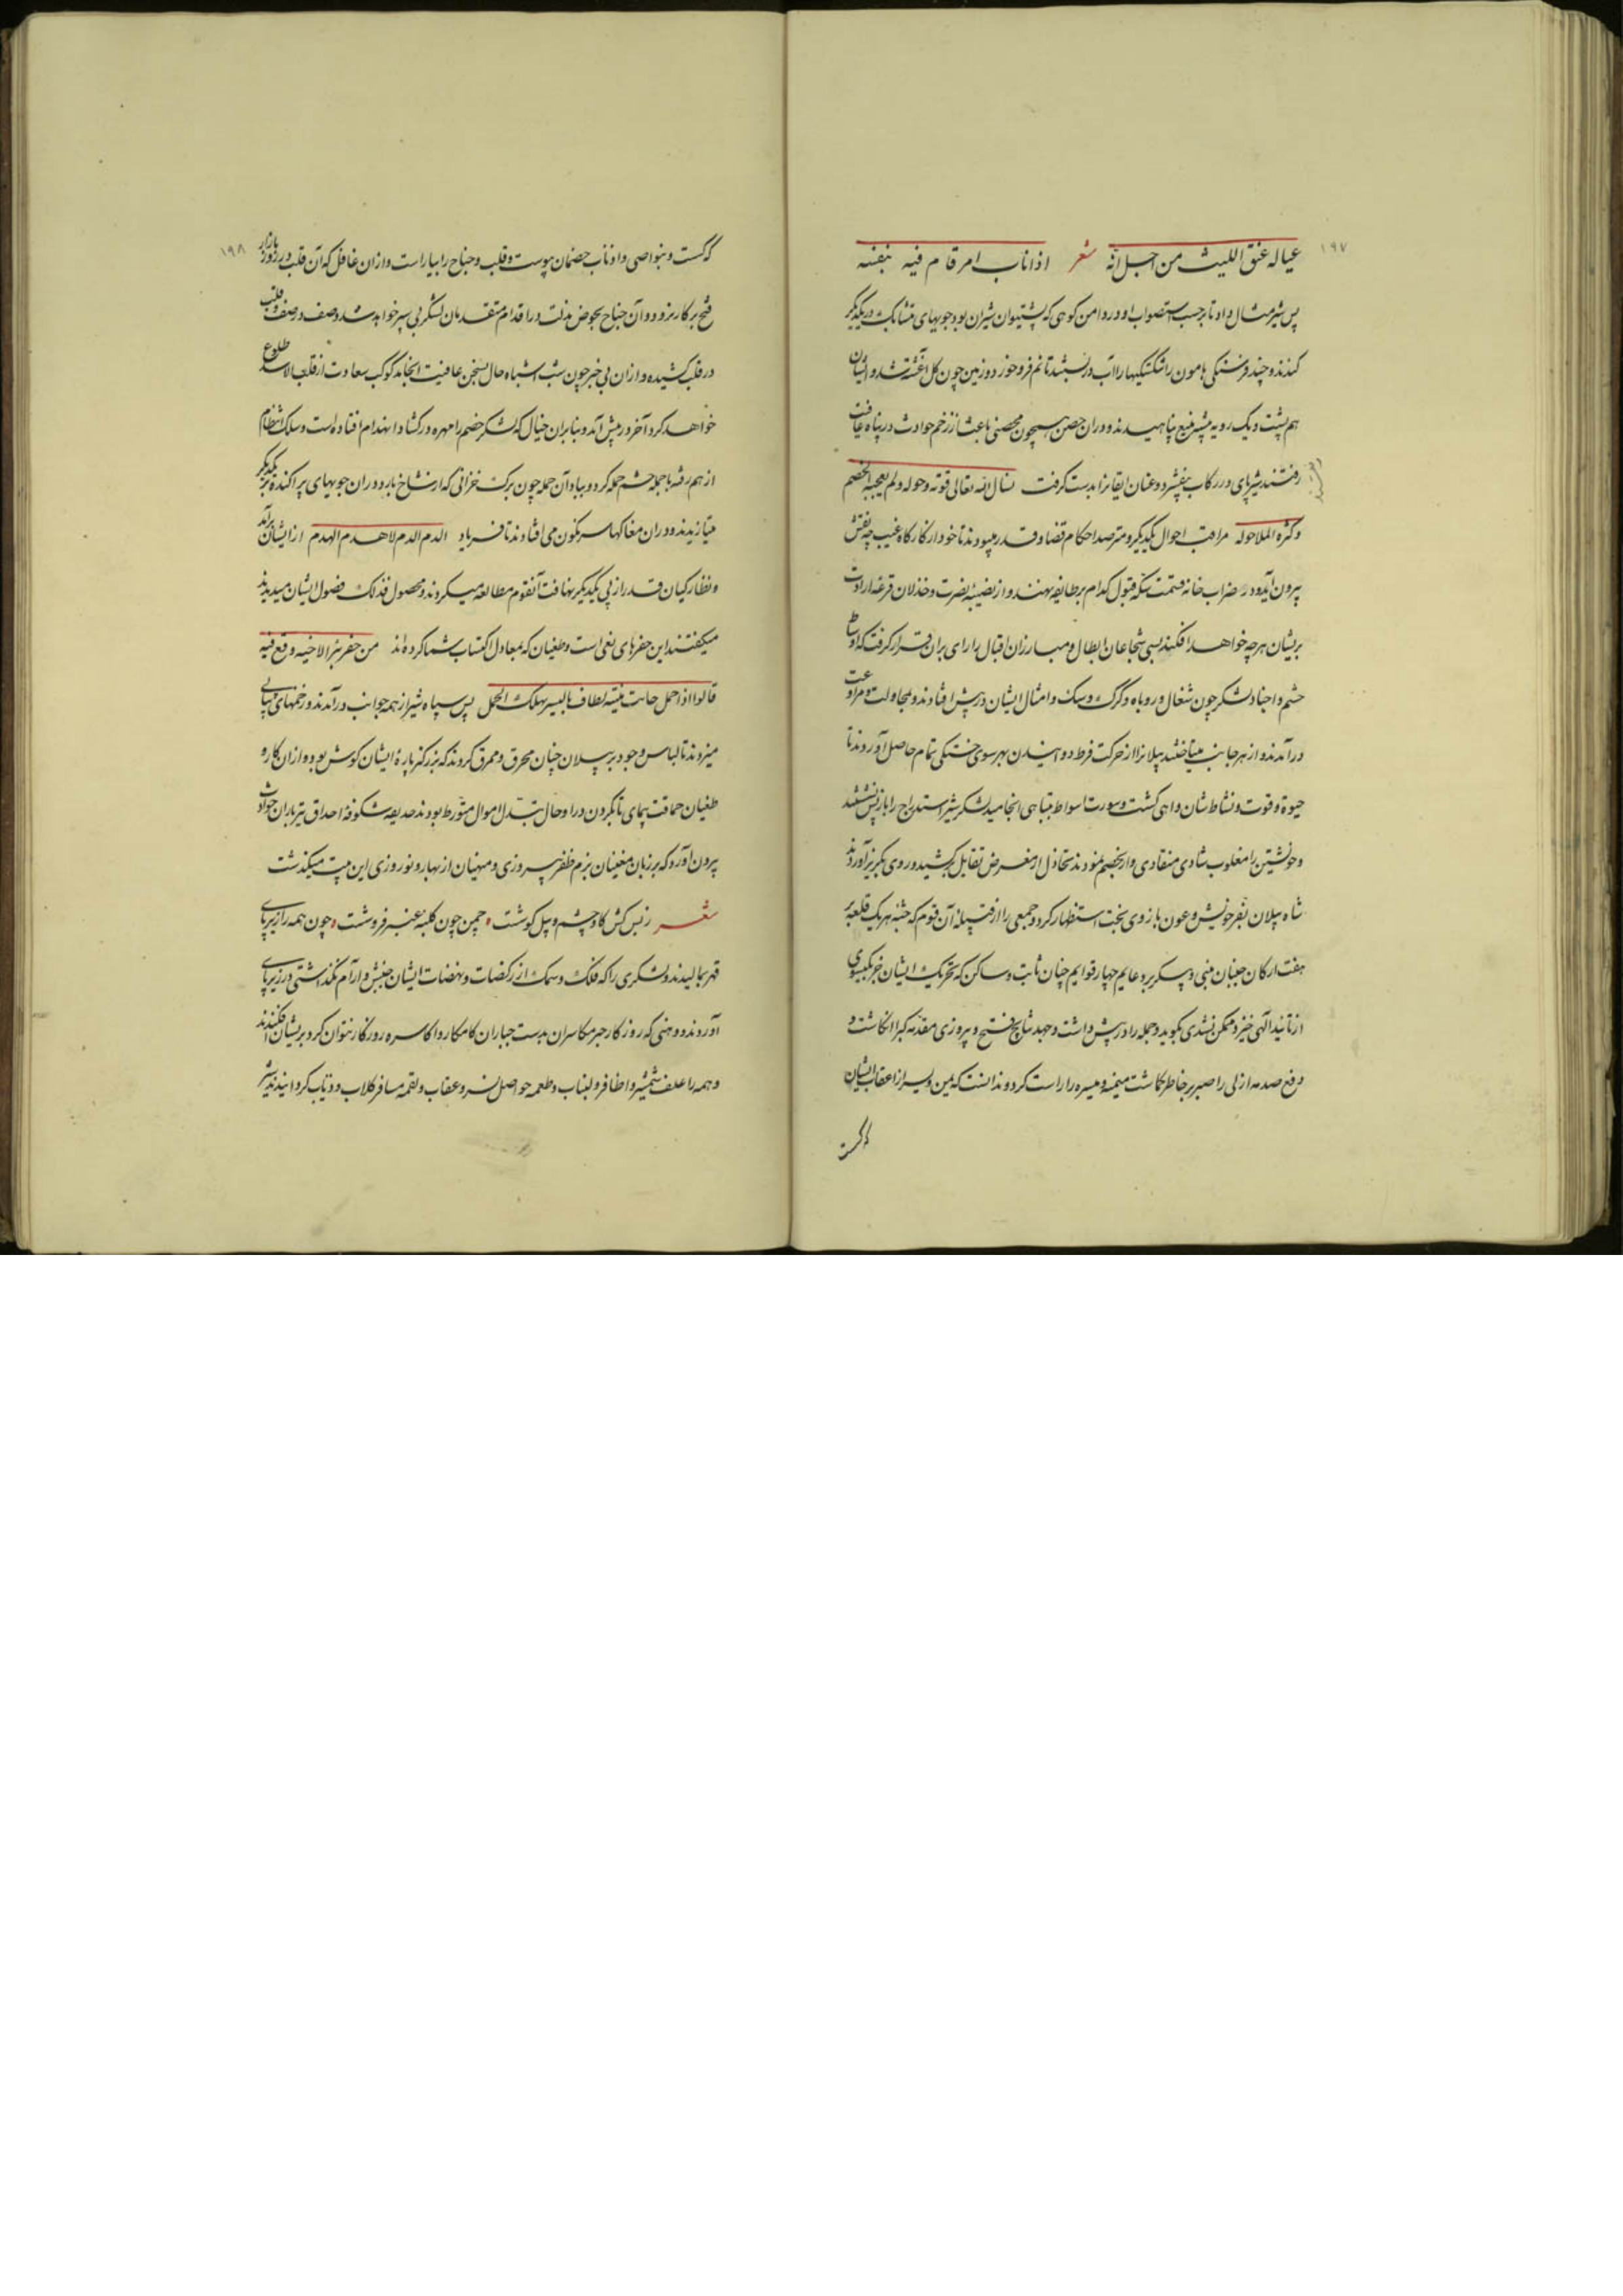 ١٩٧
عیاله عنق اللیث من اجل انه شعر اذا ناب امر قام فیه بنفسه
پس شیر مثال داد تا برحسب استصواب او در دامن کوهی که پشتیوان شیران بود جویهای متشابک در یکدیگر
کندند و چند فرسنگی هامون را آب در بستند تا نم فرو خورد و زمین چون گل آغشته شد و ایشان
هم پشت و یک رویه پناهیدند و در آن حصن همچون محصنی با عیشا ز زخم حوادث در پناه عافیت
رفتند شیر پای در رکاب بیفشرد و عنان ایقانرا بدست گرفت نسال الله تعالی قوته وحوله ولم یعجبه الخصم
وکثرة الملا حوله مراقب احوال یکدیگر و مترصد احکام قضا و قدر میبودند تا خود از کارگاه غیب چه نقش
بیرون آید و در ضراب خانه قسمت سکه قبول کدام بر طایفه نهند و از نصیبه نصرت و خذلان قرعه ارادت
بریشان هرچه خواهد افکند پس شجاعان ابطال و مبارزان اقبال را رای بران قرار گرفت که اوساط
حشم و اجناد لشکر چون شغال و روباه و گرگ و سگ و امثال ایشان در پیش افتادند و بمجاولت و مراوغت
درآمدند و از هر جانب میتاختند پیلانرا از حرکت فرط دوانیدن بهر سوی خستگی تمام حاصل آوردند تا
حیوة و قوت و نشاط شان واهی گشت و سورت اسواط بتباهی انجامید لشکر شیر استدراج را باز پس نشستند
و خویشتن را مغلوب شادی منقادی وار بخصم نمودند تخاذل از معرض تقابل برکشید و روی بگریز آوردند
شاه پیلان بفر خویش و عون بازوی بخت استظهار کرد و جمعی را از فیله آن قوم که جثه هر یک قلعه بر
هفت ارکان جنبان مبنی و پیکر بر دعایم چهار قوایم چنان ثابت و ساکن که تحریک ایشان جز بکیسوی
از تأیید الهی خیزد ممکن نشدی بگوید و جمله را در پیش داشت و جهد نتایج فتح و پیروزی مقدمه کبرا انگاشت و
دفع صدمه ازلی را صبر بر خاطر گماشت میمنه و میسره را راست کرد و ندانست که یمن و یسر از اعقاب ایشان
گسست
١٩٨
گسست و بنواصی و اذناب خصمان پیوست و قلب و جناح را بیاراست و ازان غافل که آن قلب در روز بازار
فتح بر کار نرود و آن جناح بعوض مذلت در اقدام متقدمان لشکر پی سپر خواهد شد و صف در صف و قلب
در قلب کشیده و ازان بی خبر چون شب اشتباه حال بسخن عافیت انجامد کوکب سعادت از قلب الاسد طلوع
خواهد کرد آخر در پیش آمد و بنابران خیال که لشکر خصم را مهره در گشاد انهدام افتاده است و سلک انتظام
از هم رفته با جمله حشم حمله کرد و بباد آن حمله چون برگ خزانی که از شاخ بارد در آن جویهای پراکنده بر یکدیگر
میتازیدند و دران مغاکها سرنگون می افتادند تا فریاد الدم الدم لا هدم الهدم از ایشان برآمد
و نظارگیان قدر از پی یکدیگر تهافت آن قوم مطالعه میکردند و محصول فذلک فضول ایشان میدیدند
میگفتند این حفرهای بغی است و طغیان که بمعاول اکتساب شما کرده اند من حفر بئرا لاخیه وقع فیه
قالوا اذا جمل حانت منیته یطاف بالبیر یهلک الجمل پس سپاه شیر از همه جوانب درآمدند و زخمهای پیاپی
میزدند تا لباس وجود بر پیلان چنان محرق و ممزق کردند که بزرگتر پاره ایشان گوش بود و ازان کاره
طغیان حماقت پیمای تا بگردن در اوحال تبدل اموال متورط بودند حدیقه شکوفه احداق تیرباران حوادث
بیرون آورد که بر زبان مغنیان بزم ظفر پیروزی و مهنیان از بهار و نوروزی این بیت میگذشت
شعر ز بس کش گاو چشم و پیل گوشت چمن چون کلبه عنبر فروشت چون همه را زیر پای
قهر بمالیدند و لشکری را که فلک و سمک از رکضات و نهضات ایشان جنبش و آرام نگذاشتی در زیر پای
آوردند و وهنی که روزگار جبر مکاسر آن بدست جباران کامکار و اکاسره روزگار نتوان کرد بریشان افکندند
و همه را علف شمشیر و اظافر و لبناب و طعمه حواصل نسر و عقاب و لقمه مسافر کلاب و ذیاب گردانیدند شیر